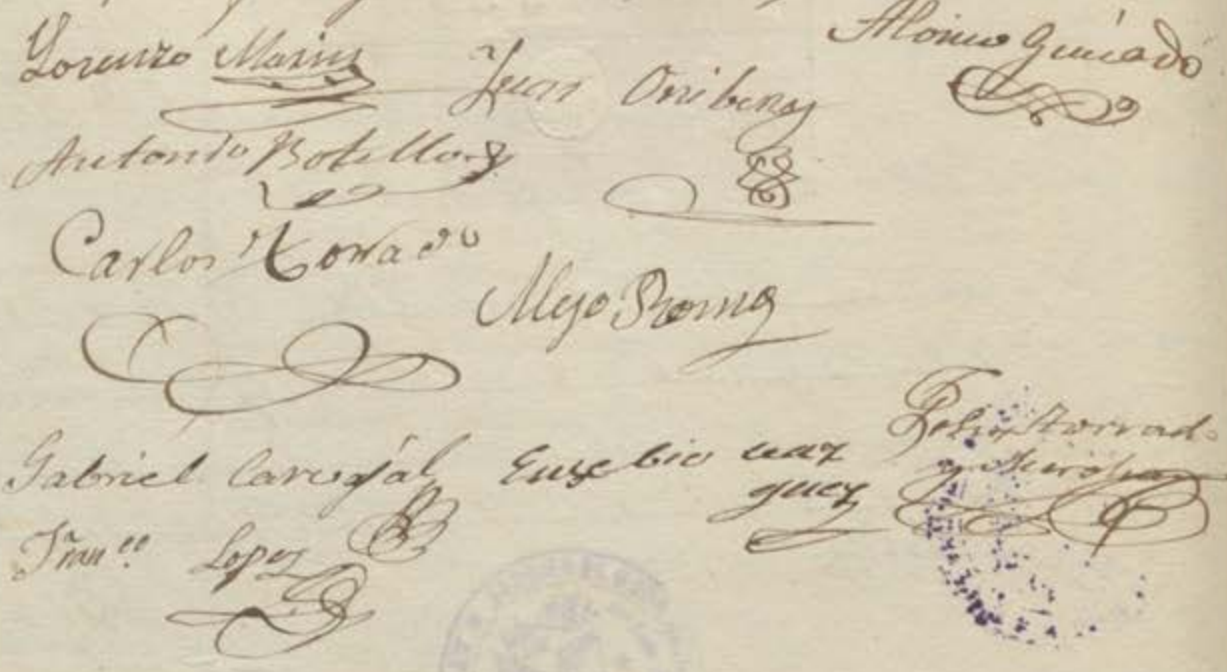 Lorenzo Marin
Juan
Alonso Guisado
Antonio Botello
Carlos Horrado
Alejo Roma
Gabriel Carvajal
Eusebio uaz
quez
Horrado
y
Fran.co Lopez